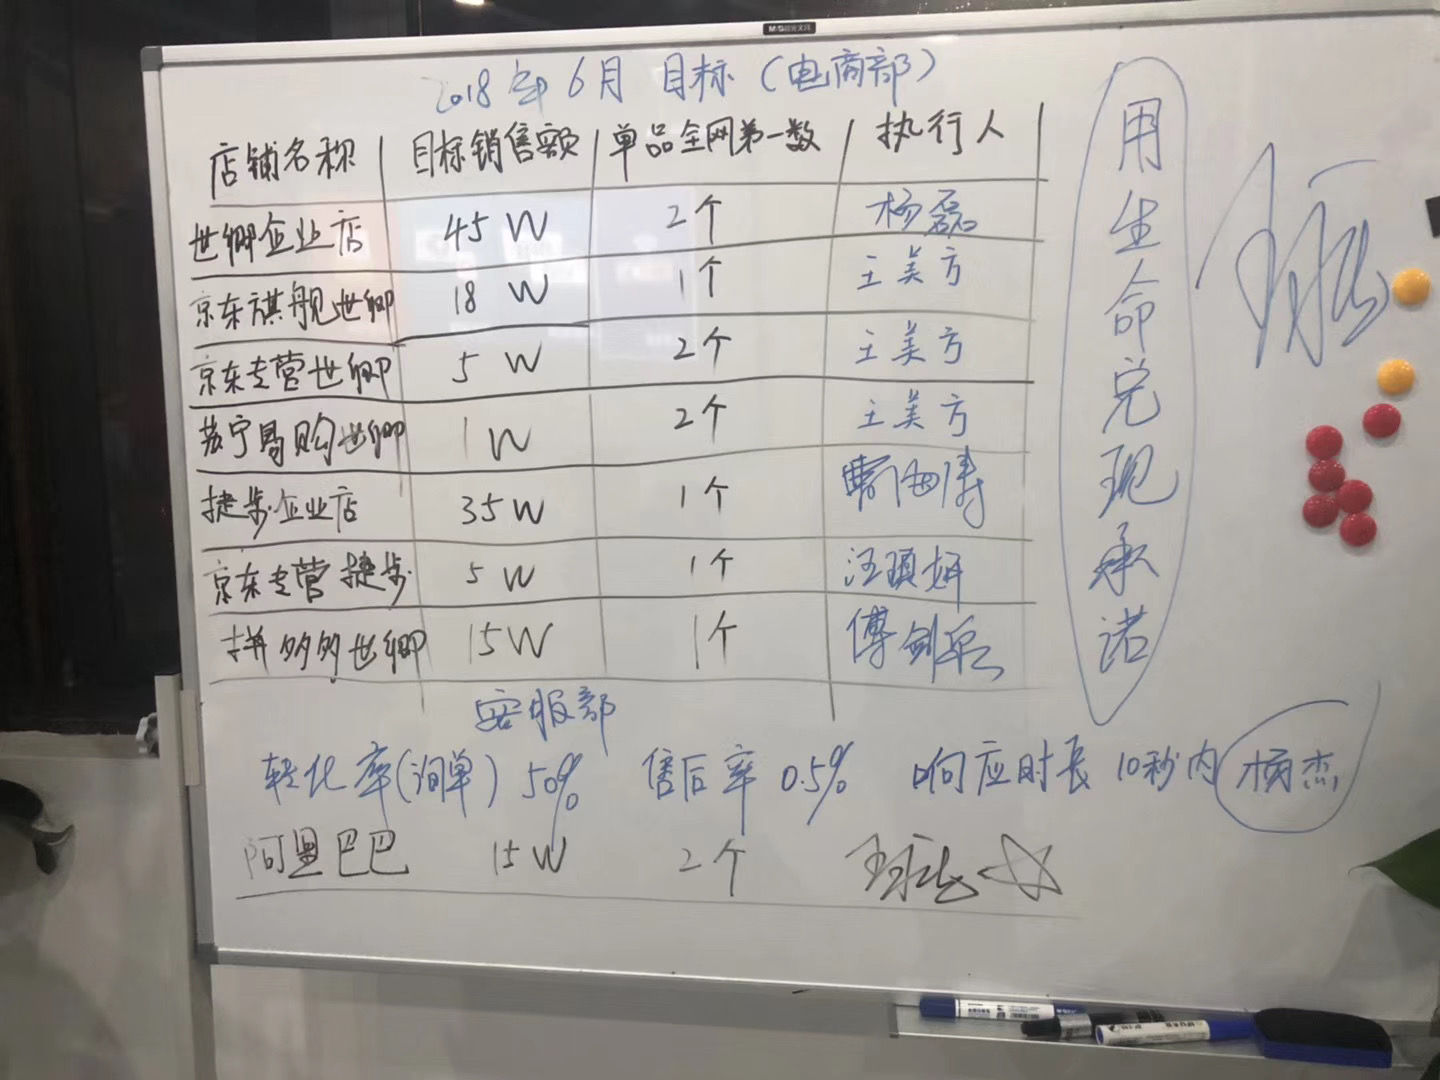 2018年6月 目标（电商部）
店铺名称 目标销售额 单品全网第一数 执行人
世卿企业店 45W 2个 杨磊
京东旗舰世卿 18W 1个 王美方
京东专营世卿 5W 2个 王美方
苏宁易购世卿 1W 2个 王美方
捷步企业店 35W 1个
京东专营捷步 5W 1个 汪琪妍
拼多多世卿 15W 1个 傅剑兵
客服部
转化率(询单) 50% 售后率 0.5% 响应时长 10秒内 杨杰
阿里巴巴 15W 2个
用生命兑现承诺
M&G晨光文具